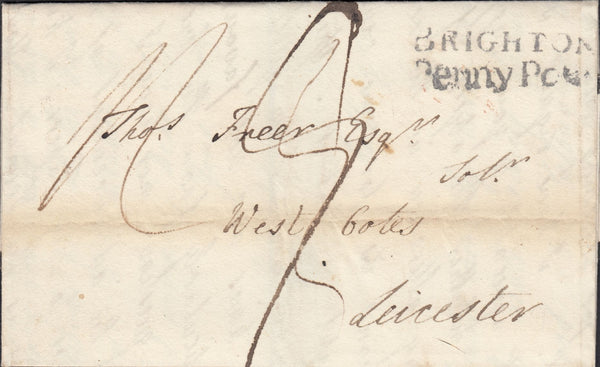 BRIGHTON
Penny Post
Thos. Freer Esqr.
Solr.
West Cotes
Leicester